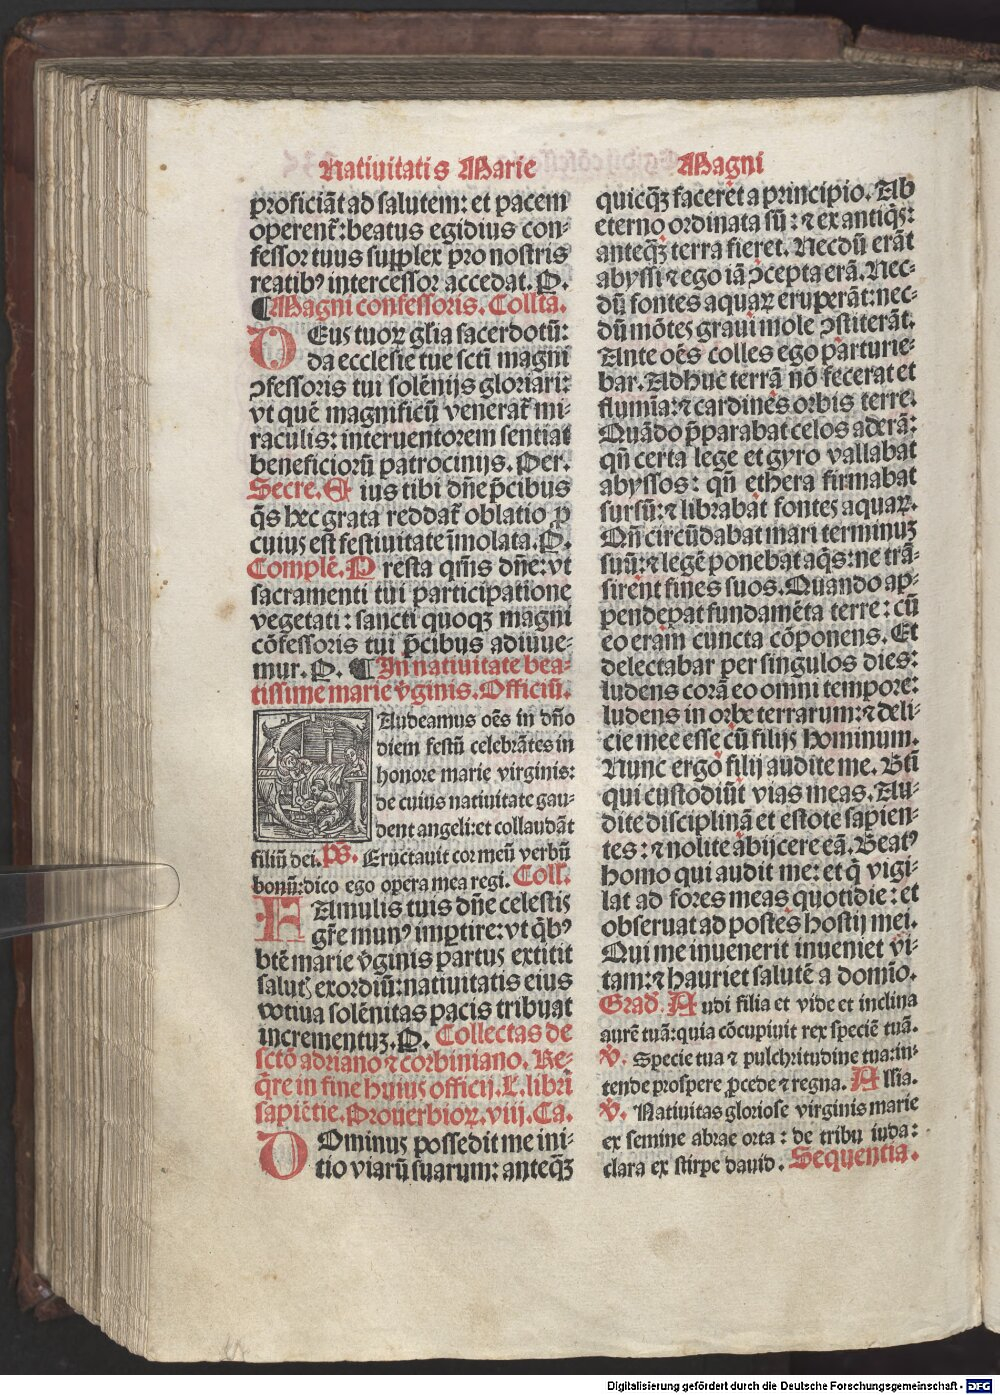 Natiuitatis Marie
Magni
proficiāt ad salutem: et pacem
operent᷑: beatus egidius con⸗
fessor tuus supplex pro nostris
reatibꝰ intercessor accedat. P.
¶ Magni confessoris. Collta.
DEus tuoꝝ gl̄ia sacerdotū:
da ecclesie tue scti magni
ꝯfessoris tui solēnijs gloriari:
vt quē magnificū venerat᷑ mi⸗
raculis: interuentorem sentiat
beneficiorū patrocinijs. Per.
Secre. Sius tibi dn̄e p̄cibus
q̄s hec grata reddat᷑ oblatio ꝓ
cuius est festiuitate īmolata. P.
Complē. Presta qm̄s dn̄e: vt
sacramenti tui participatione
vegetati: sancti quoqꝫ magni
cōfessoris tui p̄cibus adiuue⸗
mur. P. ¶ In natiuitate bea⸗
tissime marie v̄ginis. Officiū.
GAudeamus oēs in dn̄o
diem festū celebrātes in
honore marie virginis:
de cuius natiuitate gau⸗
dent angeli: et collaudāt
filiū dei. Ps. Eructauit cor meū verbū
bonū: dico ego opera mea regi. Coll.
FAmulis tuis dn̄e celestis
gr̄e munꝰ imꝑtire: vt qb̄ꝰ
btē marie v̄ginis partus extitit
salut᷒ exordiū: natiuitatis eius
votiua solēnitas pacis tribuat
incrementuꝫ. P. Collectas de
sctō adriano ⁊ corbiniano. Re⸗
q̄re in fine huius officij. L. libri
sapiētie. Prouerbioꝝ. viij. Ca.
DOminus possedit me ini⸗
tio viarū suarum: anteqꝫ
quicqꝫ faceret a principio. Ab
eterno ordinata sū: ⁊ ex antiqs:
anteqꝫ terra fieret. Necdū erāt
abyssi ⁊ ego iā ꝯcepta erā. Nec⸗
dū fontes aquaꝝ eruperāt: nec⸗
dū mōtes graui mole ꝯstiterāt.
Ante oēs colles ego parturie⸗
bar. Adhuc terrā nō fecerat et
flumīa: ⁊ cardines orbis terre.
Quādo p̄parabat celos aderā:
qn̄ certa lege et gyro vallabat
abyssos: qn̄ ethera firmabat
sursū: ⁊ librabat fontes aquaꝝ.
Qn̄ circūdabat mari terminuꝫ
suū: ⁊ legē ponebat aq̄s: ne trā⸗
sirent fines suos. Quando ap⸗
pendepat fundamēta terre: cū
eo eram cuncta cōponens. Et
delectabar per singulos dies:
ludens corā eo omni tempore:
ludens in orbe terrarum: ⁊ deli⸗
cie mee esse cū filijs hominum.
Nunc ergo filij audite me. Bti
qui custodiūt vias meas. Au⸗
dite disciplinā et estote sapien⸗
tes: ⁊ nolite abijcere eā. Beatꝰ
homo qui audit me: et q̄ vigi⸗
lat ad fores meas quotidie: et
obseruat ad postes hostij mei.
Qui me inuenerit inueniet vi⸗
tam: ⁊ hauriet salutē a domīo.
Grad. Audi filia et vide et inclina
aurē tuā: quia cōcupiuit rex speciē tuā.
℣. Specie tua ⁊ pulchritudine tua: in⸗
tende prospere ꝓcede ⁊ regna. Allīa.
℣. Natiuitas gloriose virginis marie
ex semine abrae orta: de tribu iuda:
clara ex stirpe dauid. Sequentia.
Digitalisierung gefördert durch die Deutsche Forschungsgemeinschaft - DFG